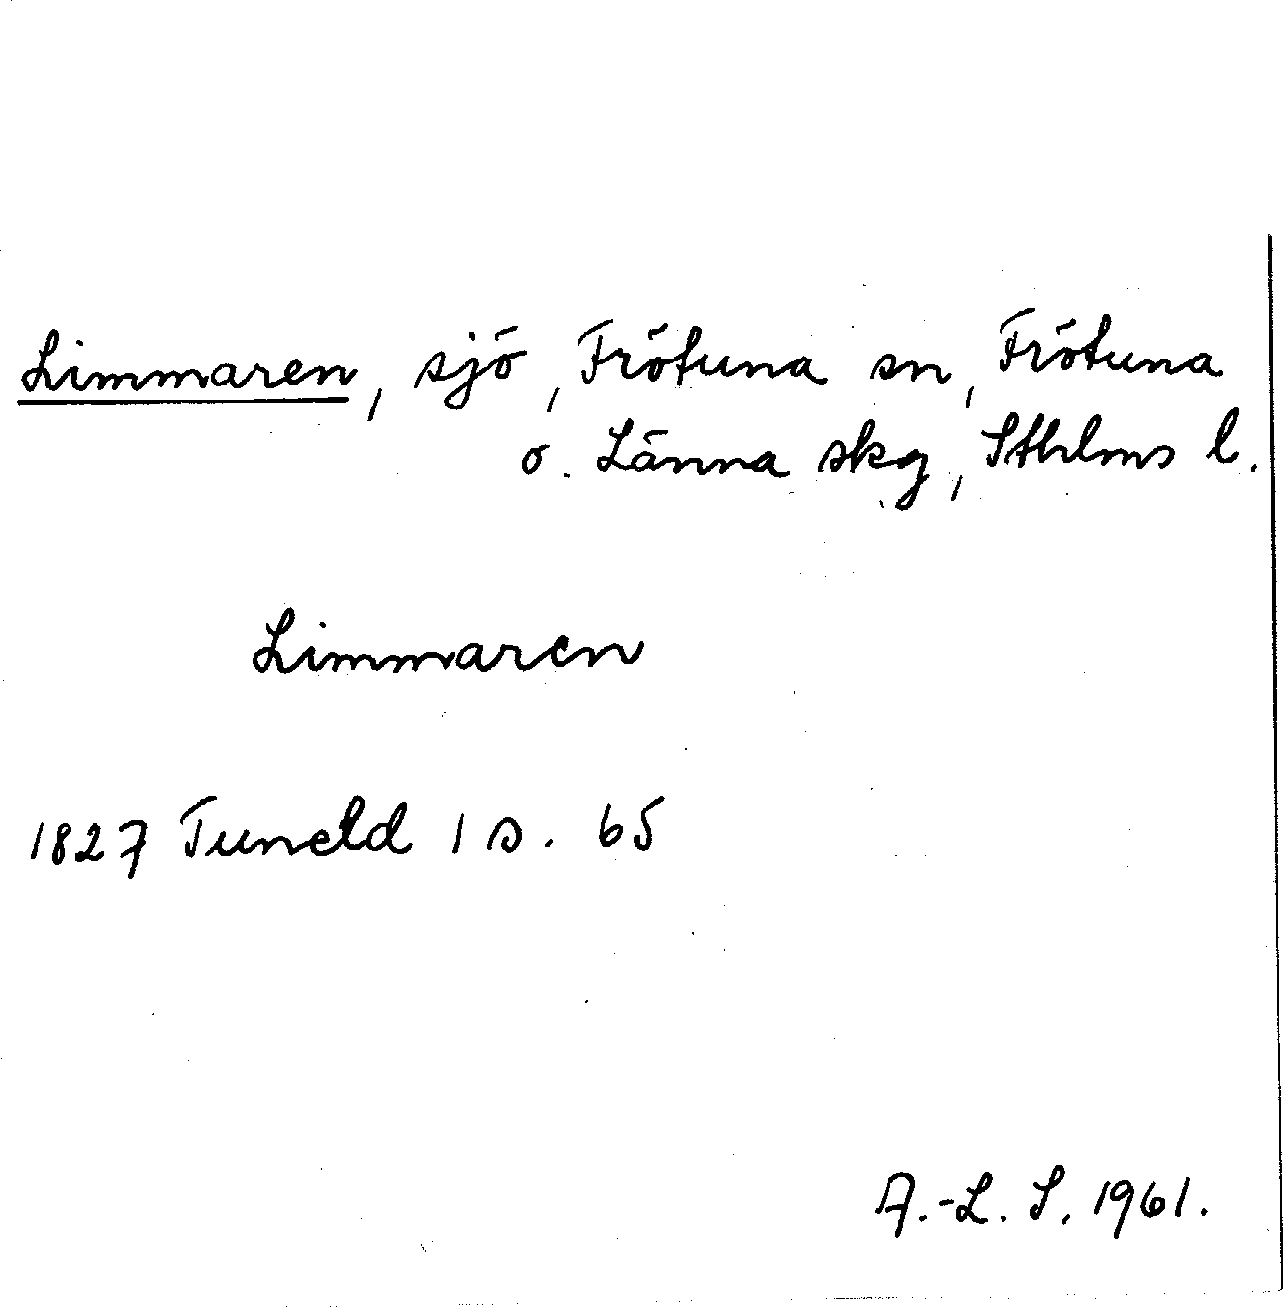 Limmaren, sjö, Frötuna sn, Frötuna
o. Länna skg, Sthlms l.
Limmaren
1827 Tuneld 1 s. 65
A.-L. S. 1961.